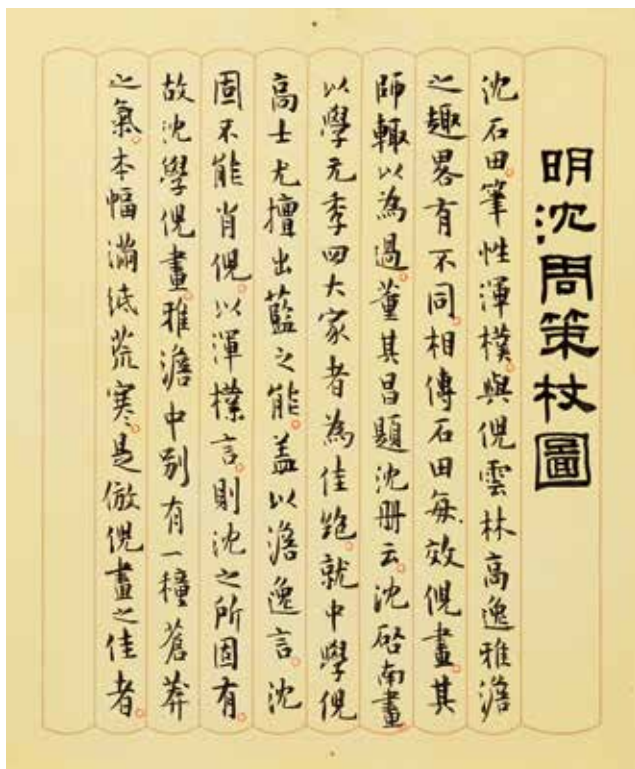 明沈周策杖圖
沈石田。筆性渾樸。與倪雲林高逸雅澹
之趣畧有不同。相傳石田每效倪畫。其
師輒以為過。董其昌題沈册云。沈啓南畫
以學元季四大家者為佳。就中學倪
高士尤擅出藍之能。蓋以澹逸言。沈
固不能肖倪。以渾樸言。則沈之所固有。
故沈學倪畫。雅澹中別有一種蒼莽
之氣。本幅滿紙荒寒。是倣倪畫之佳者。